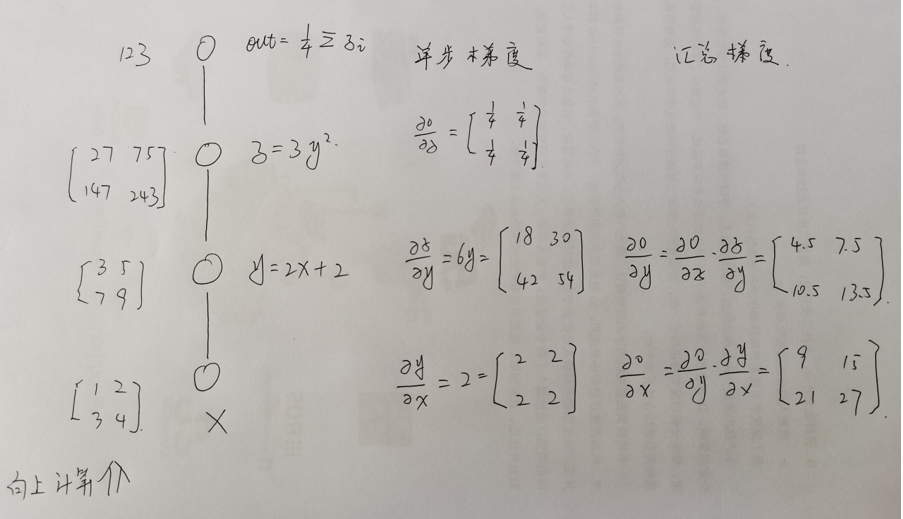 123 out = 1/4 Σ zi 单步梯度 汇总梯度.
[27 75; 147 243] z = 3y². ∂o/∂z = [1/4 1/4; 1/4 1/4]
[3 5; 7 9] y = 2x + 2 ∂z/∂y = 6y = [18 30; 42 54] ∂o/∂y = ∂o/∂z · ∂z/∂y = [4.5 7.5; 10.5 13.5].
[1 2; 3 4]. X ∂y/∂x = 2 = [2 2; 2 2] ∂o/∂x = ∂o/∂y · ∂y/∂x = [9 15; 21 27].
向上计算 ⇑